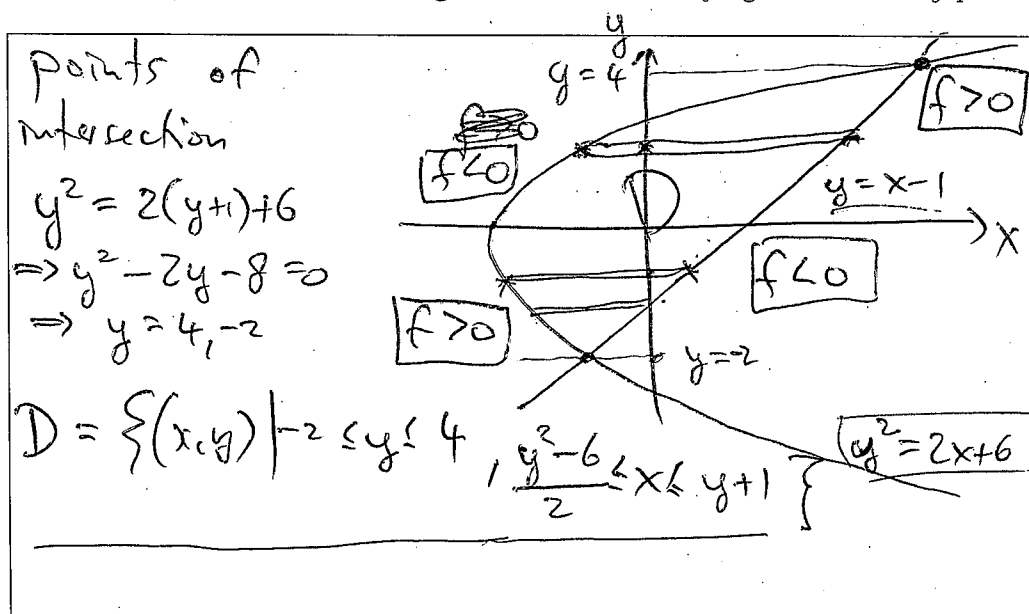 points of
intersection
y² = 2(y+1)+6
=> y² - 2y - 8 = 0
=> y = 4, -2
D = {(x,y) | -2 ≤ y ≤ 4, (y²-6)/2 ≤ x ≤ y+1}
y
y = 4
f>0
f<0
y = x-1
x
f<0
f>0
y = -2
y² = 2x+6